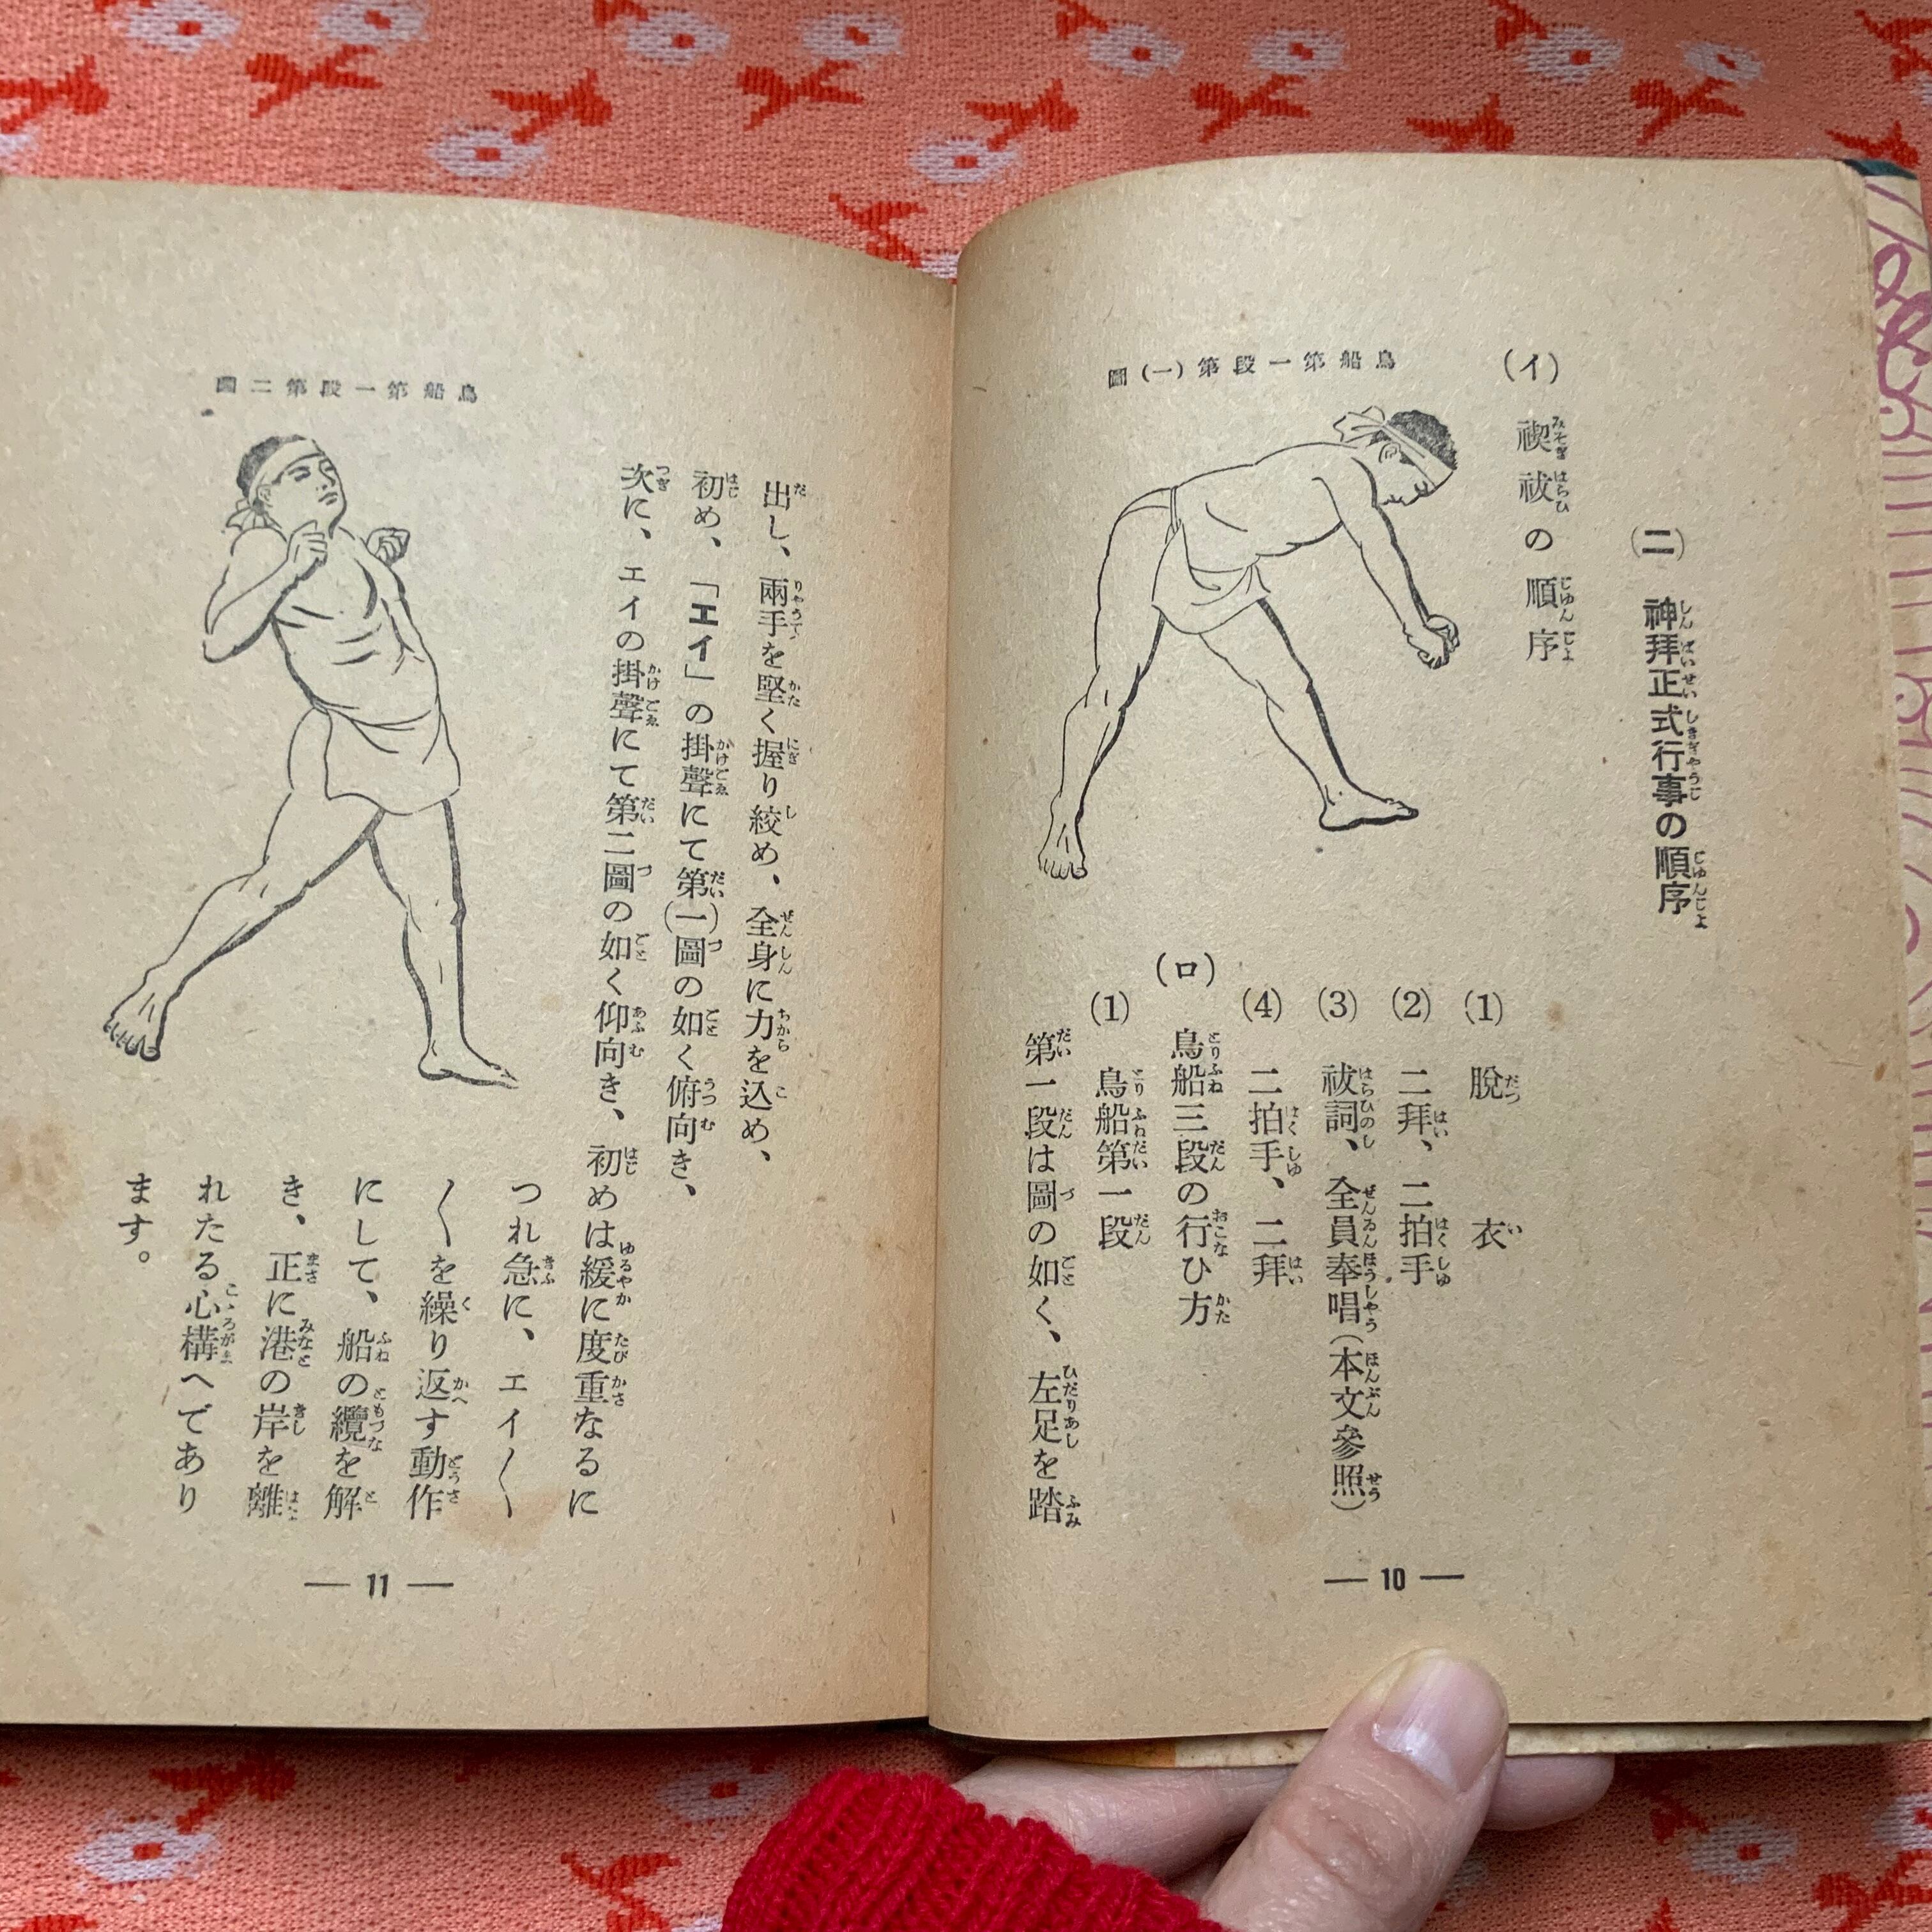 (二) 神拜正式行事の順序
(イ) 禊祓の順序
(1) 脫衣
(2) 二拜、二拍手
(3) 祓詞、全員奉唱(本文參照)
(4) 二拍手、二拜
(ロ) 鳥船三段の行ひ方
(1) 鳥船第一段
第一段は圖の如く、左足を踏
鳥船第一段第(一)圖
— 10 —
出し、兩手を堅く握り絞め、全身に力を込め、
初め、「エイ」の掛聲にて第(一)圖の如く俯向き、
次に、エイの掛聲にて第二圖の如く仰向き、初めは緩に度重なるに
つれ急に、エイ〱
〱を繰り返す動作
にして、船の纜を解
き、正に港の岸を離
れたる心構へであり
ます。
鳥船第一段第二圖
— 11 —